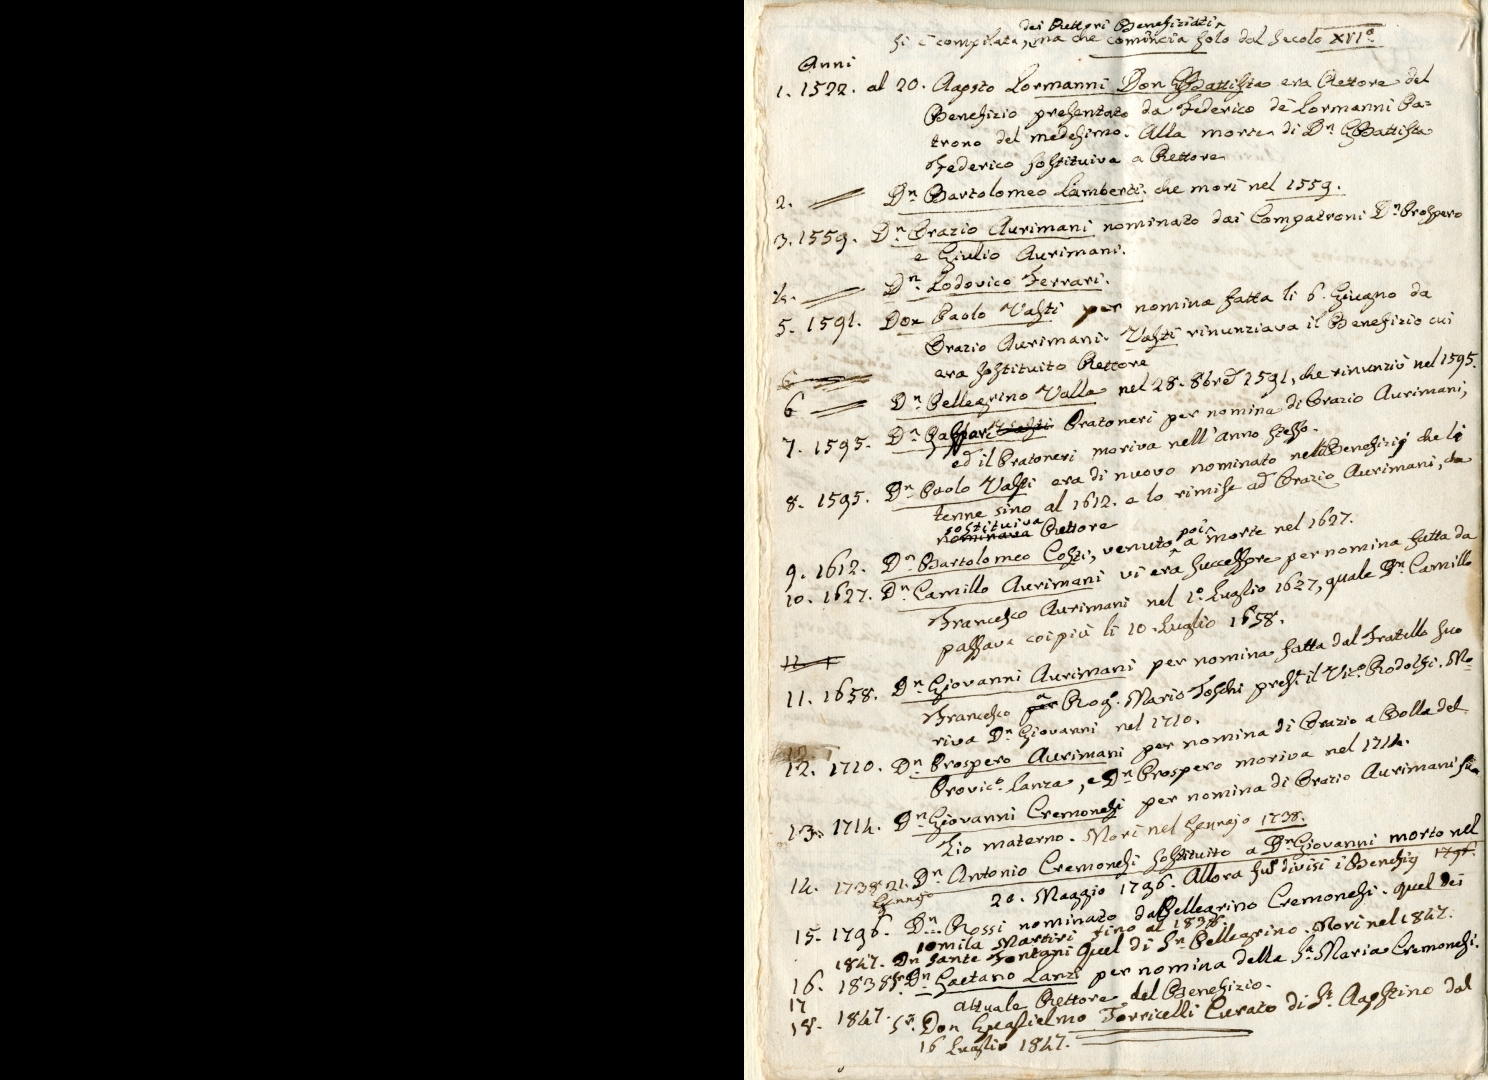 dei Rettori Benefiziati
si è compilata, ma che comincia solo dal Secolo XVIº
Anni
1. 1522. al 20. Agosto Lormanni Don GBattista era Rettore del
Benefizio presentato da Federico de Lormanni Pa=
trono del medesimo. Alla morte di Dn GBattista
Federico sostituiva a Rettore
2. Dn Bartolomeo Lamberti. che morì nel 1559.
3. 1559. Dn Orazio Aurimani nominato dai Compatroni Dn Prospero
e Giulio Aurimani.
4. Dn Lodovico Ferrari.
5. 1591. Don Paolo Vasti per nomina fatta li 6. Giugno da
Orazio Aurimani. Vasti rinunziava il Benefizio cui
era sostituito Rettore
6 Dn Pellegrino Valla nel 28. 8bre 1591, che rinunziò nel 1595.
7. 1595. Dn Gaspari Pratoneri per nomina di Orazio Aurimani,
ed il Pratoneri moriva nell'anno stesso.
8. 1595. Dn Paolo Vasti era di nuovo nominato nel Benefizio che lo
tenne sino al 1612. e lo rimise ad Orazio Aurimani, che
sostituiva
nominava Rettore
9. 1612. Dn Bartolomeo Costi, venuto poi a morte nel 1627.
10. 1627. Dn Camillo Aurimani vi era successore per nomina fatta da
Francesco Aurimani nel 1º Luglio 1627, quale Dn Camillo
passava coi più li 10. Luglio 1658.
11. 1658. Dn Giovanni Aurimani per nomina fatta dal Fratello suo
Francesco a Rog. Mario Toschi presst il Vic. Rodolfi. Mo=
riva Dn Giovanni nel 1710.
12. 1710. Dn Prospero Aurimani per nomina di Orazio a Bolla del
Provico Lanza, e Dn Prospero moriva nel 1714.
13. 1714. Dn Giovanni Cremonesi per nomina di Orazio Aurimani suo
Zio materno. Morì nel Gennajo 1738.
14. 1738 21. Dn Antonio Cremonesi sostituito a Dn Giovanni morto nel
Gennajo 20. Maggio 1796. Allora fur divisi i Benefizj 1796.
15. 1796. Dn Rossi nominato da Pellegrino Cremonesi. quel dei
10mila Martiri fino al 1838.
1847. Dn Sante Fontani quel di Sn Pellegrino. Morì nel 1847.
16. 1838 Dn Gaetano Lanzi per nomina della Sa Maria Cremonesi.
17 attuale Rettore del Benefizio.
18. 1847. Don Guglielmo Torricelli Curato di St Agostino dal
16 Luglio 1847.